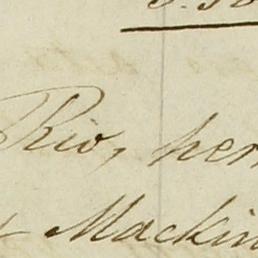 Rio, her
Mackin